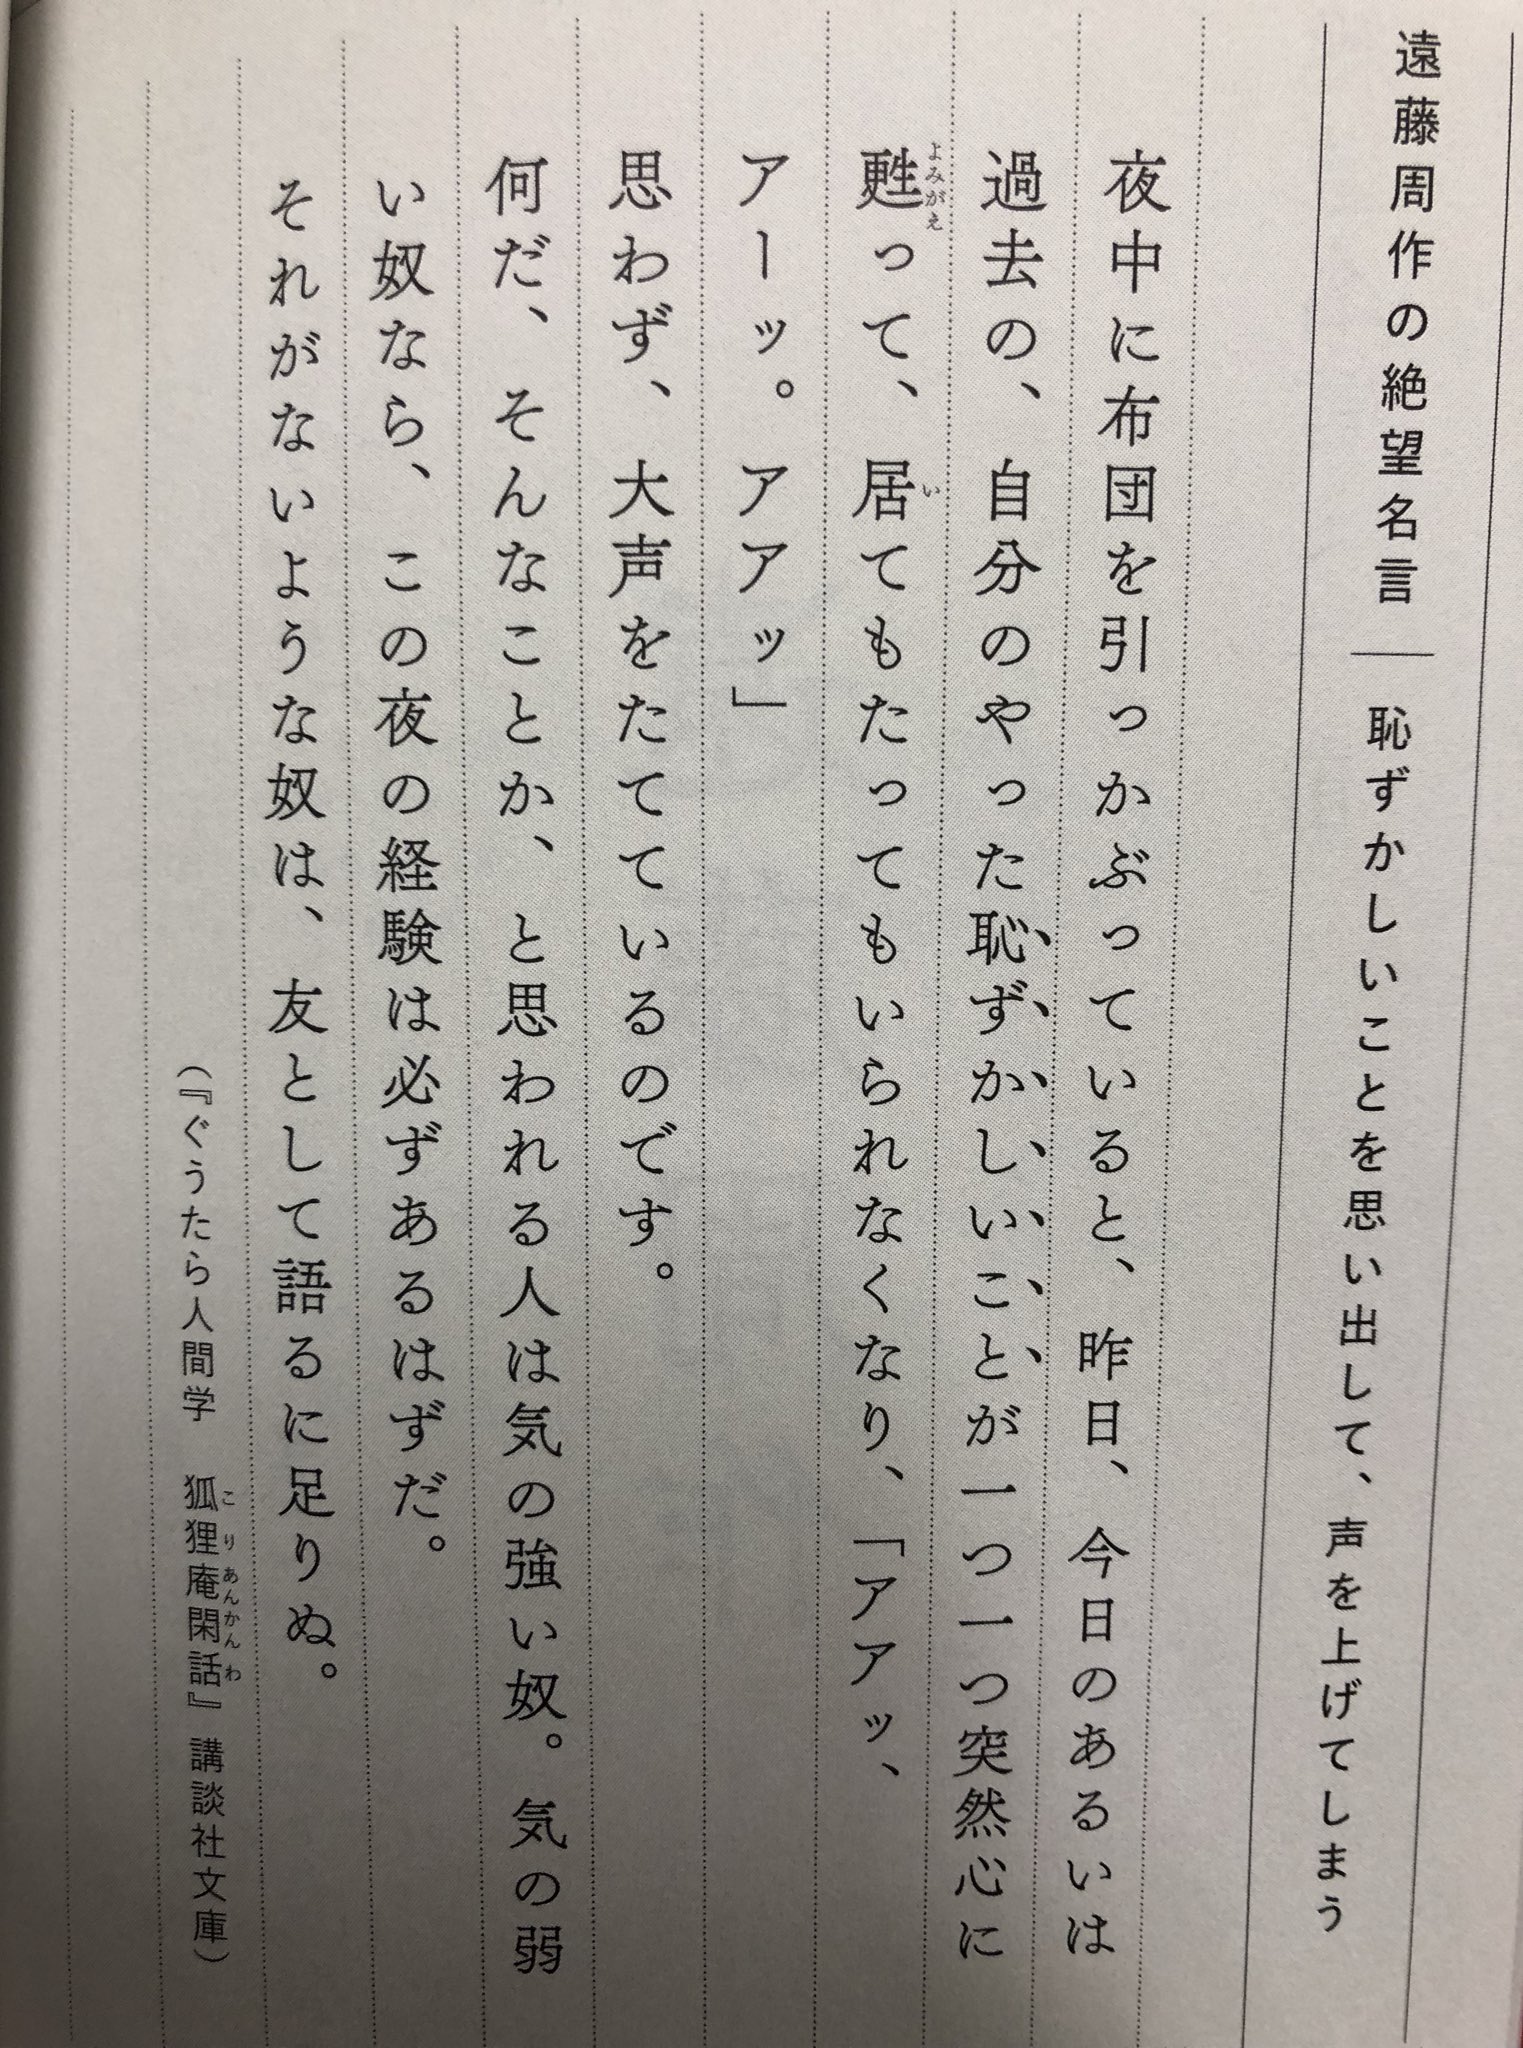 遠藤周作の絶望名言｜恥ずかしいことを思い出して、声を上げてしまう
夜中に布団を引っかぶっていると、昨日、今日のあるいは
過去の、自分のやった恥ずかしいことが一つ一つ突然心に
甦って、居てもたってもいられなくなり、「アアッ、
アーッ。アアッ」
思わず、大声をたてているのです。
何だ、そんなことか、と思われる人は気の強い奴。気の弱
い奴なら、この夜の経験は必ずあるはずだ。
それがないような奴は、友として語るに足りぬ。
（『ぐうたら人間学　狐狸庵閑話』講談社文庫）